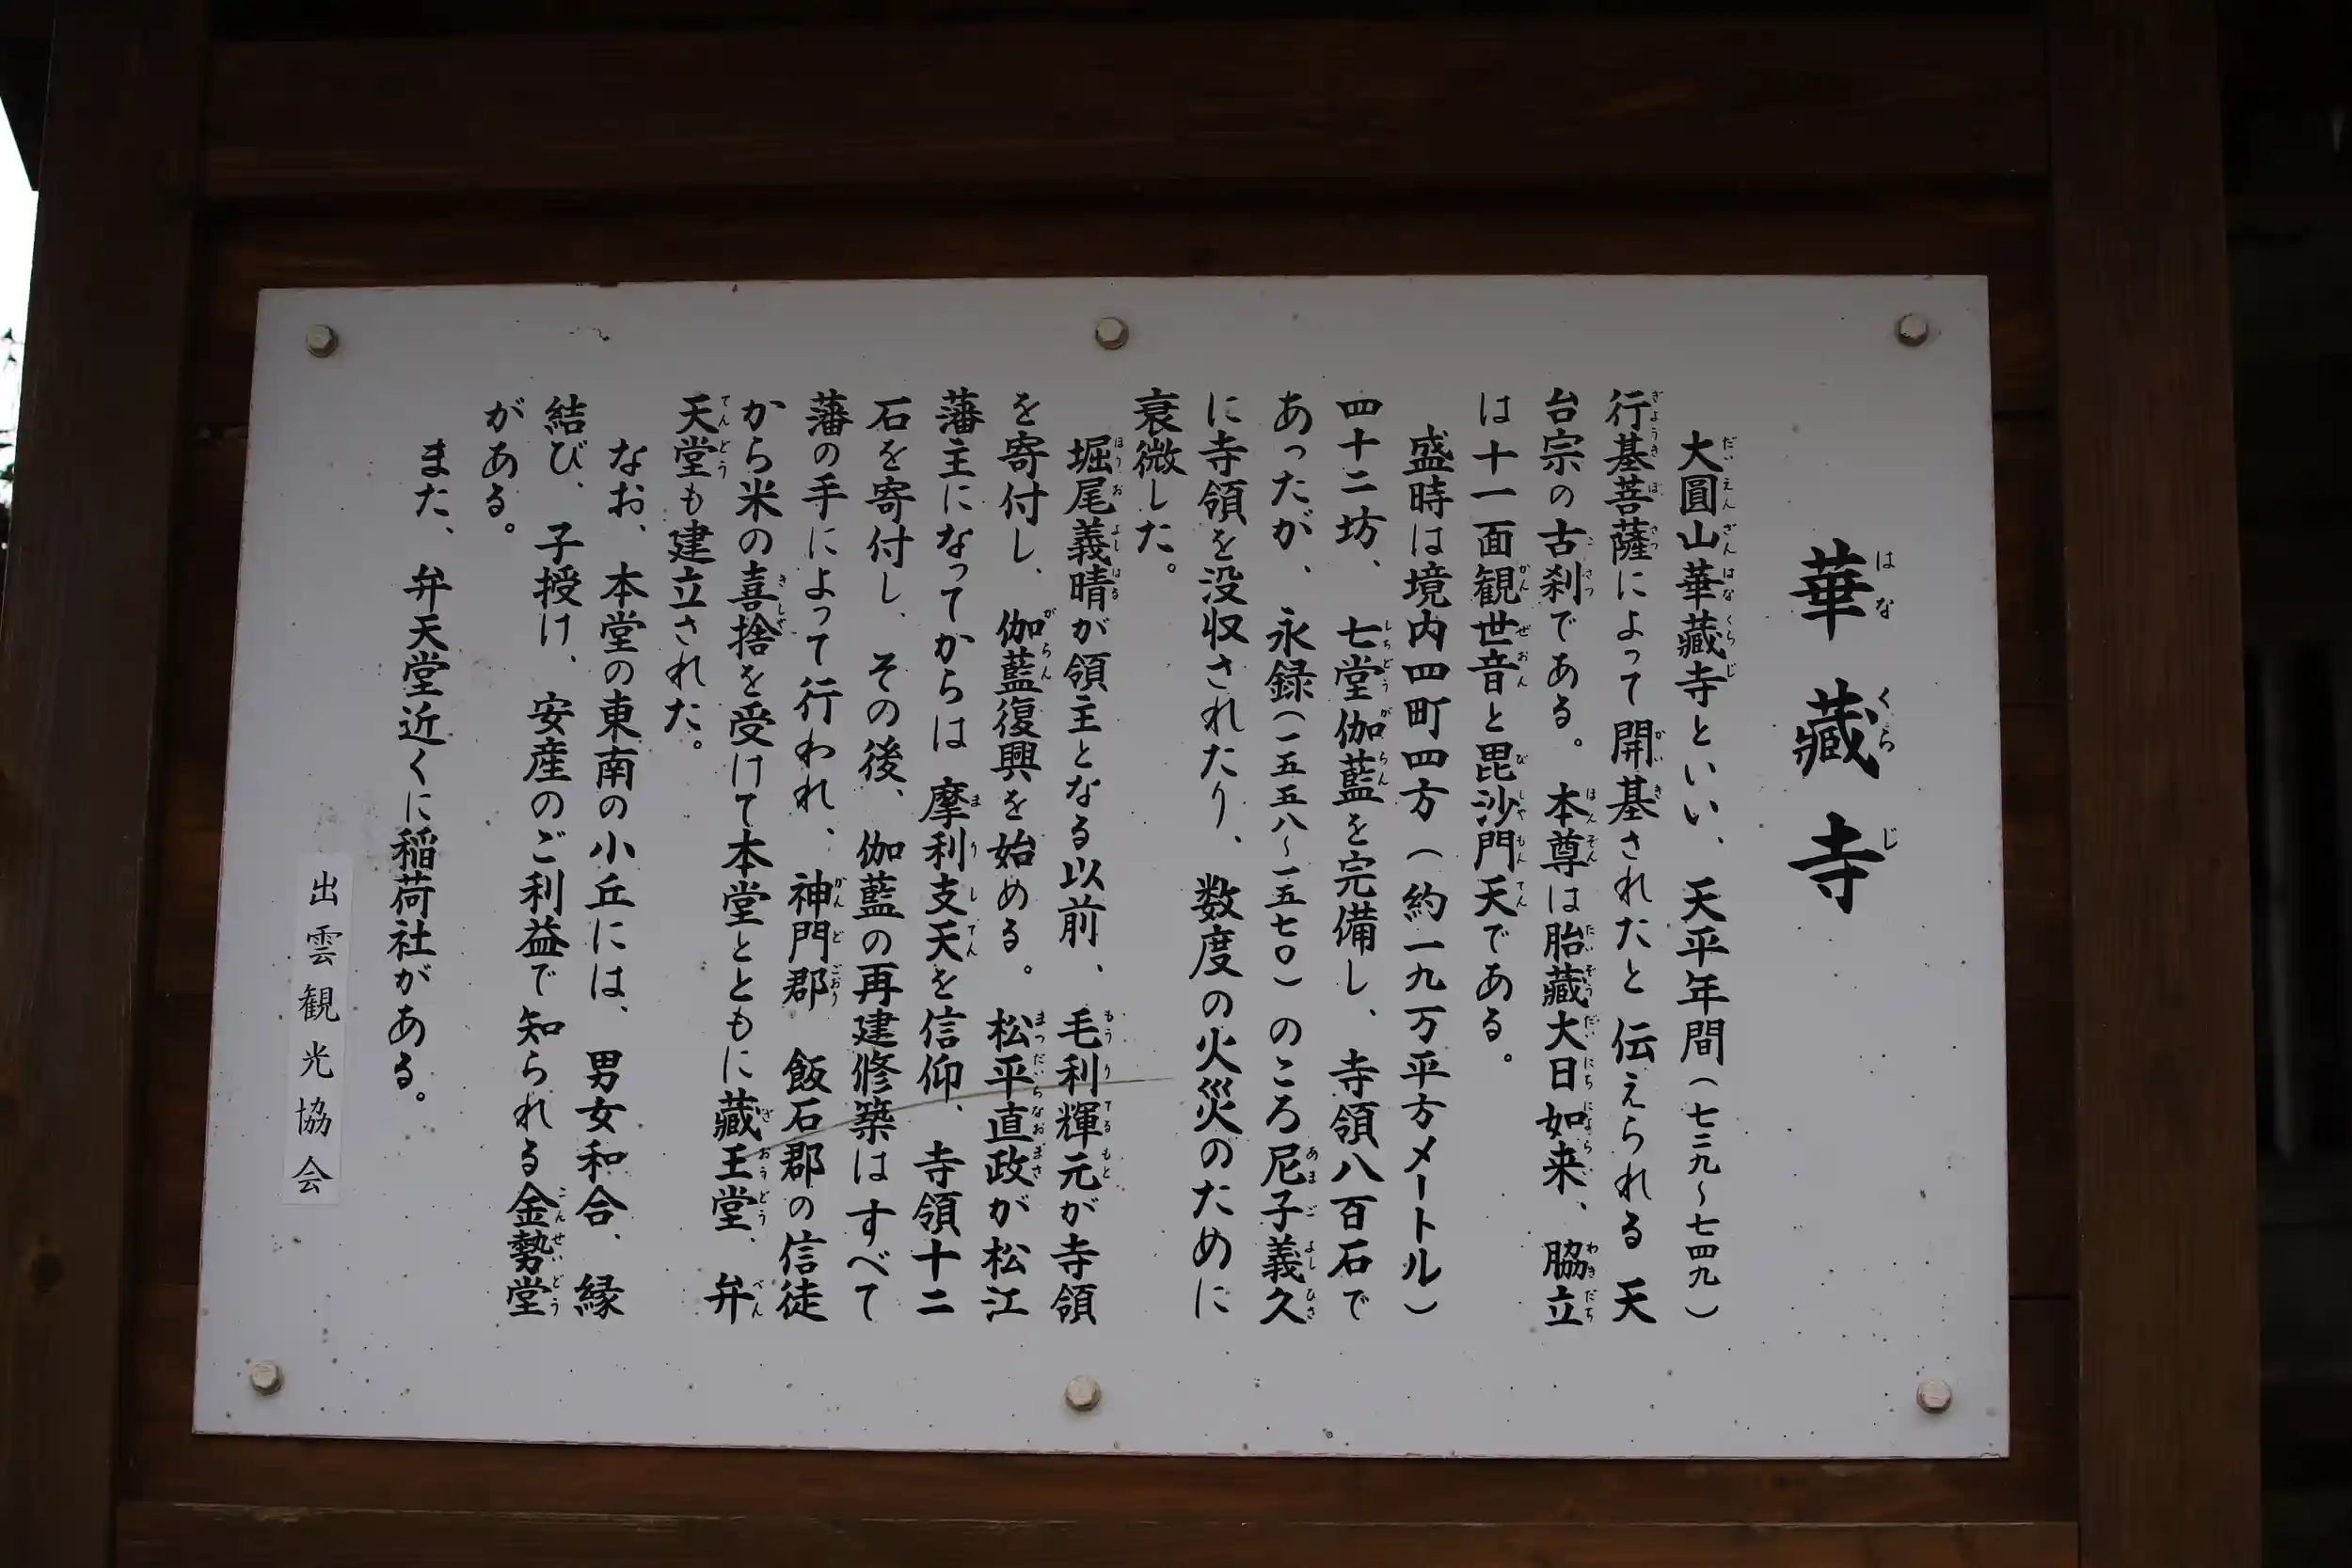 華藏寺
大圓山華藏寺といい、天平年間(七二九~七四九)
行基菩薩によって開基されたと伝えられる天
台宗の古刹である。本尊は胎藏大日如来、脇立
は十一面観世音と毘沙門天である。
盛時は境内四町四方(約一九万平方メートル)
四十二坊、七堂伽藍を完備し、寺領八百石で
あったが、永録(一五五八~一五七〇)のころ尼子義久
に寺領を没収されたり、数度の火災のために
衰微した。
堀尾義晴が領主となる以前、毛利輝元が寺領
を寄付し、伽藍復興を始める。松平直政が松江
藩主になってからは摩利支天を信仰、寺領十二
石を寄付し、その後、伽藍の再建修築はすべて
藩の手によって行われ、神門郡 飯石郡の信徒
から米の喜捨を受けて本堂とともに藏王堂、弁
天堂も建立された。
なお、本堂の東南の小丘には、男女和合、縁
結び、子授け、安産のご利益で知られる金勢堂
がある。
また、弁天堂近くに稲荷社がある。
出雲観光協会